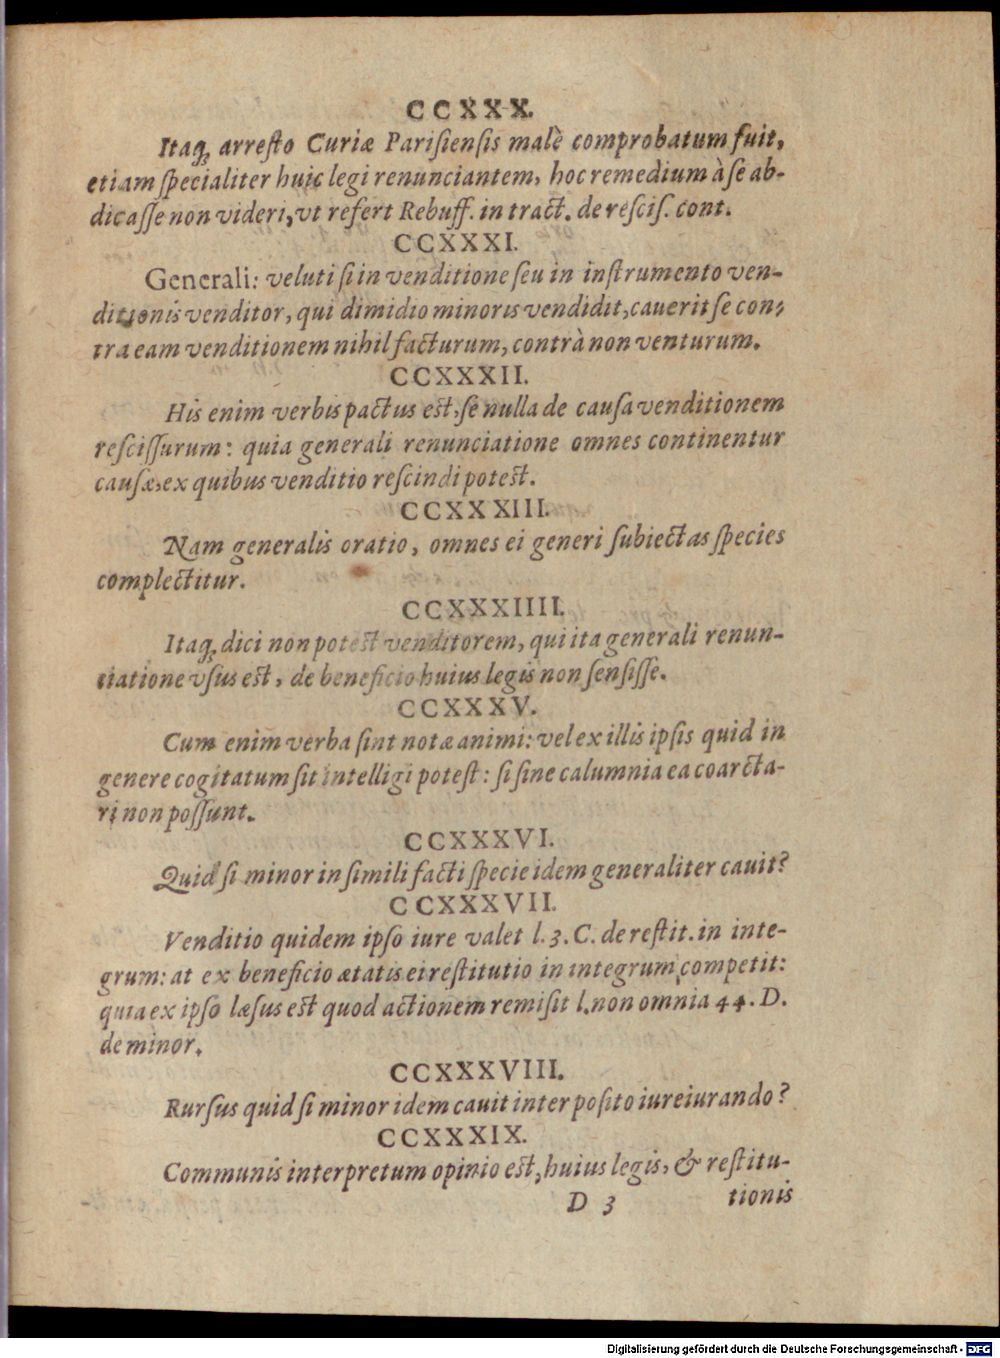 CCXXX.
Itaq; arresto Curiæ Parisiensis malè comprobatum fuit,
etiam specialiter huic legi renunciantem, hoc remedium à se ab-
dicasse non videri, vt refert Rebuff. in tract. de rescis. cont.
CCXXXI.
Generali: veluti si in venditione seu in instrumento ven-
ditionis venditor, qui dimidio minoris vendidit, cauerit se con-
tra eam venditionem nihil facturum, contrà non venturum.
CCXXXII.
His enim verbis pactus est, se nulla de causa venditionem
rescissurum: quia generali renunciatione omnes continentur
causæ, ex quibus venditio rescindi potest.
CCXXXIII.
Nam generalis oratio, omnes ei generi subiectas species
complectitur.
CCXXXIIII.
Itaq; dici non potest venditorem, qui ita generali renun-
ciatione vsus est, de beneficio huius legis non sensisse.
CCXXXV.
Cum enim verba sint notæ animi: vel ex illis ipsis quid in
genere cogitatum sit intelligi potest: si sine calumnia ea coarcta-
ri non possunt.
CCXXXVI.
Quid si minor in simili facti specie idem generaliter cauit?
CCXXXVII.
Venditio quidem ipso iure valet l. 3. C. de restit. in inte-
grum: at ex beneficio ætatis ei restitutio in integrum competit:
quia ex ipso læsus est quod actionem remisit l. non omnia 44. D.
de minor.
CCXXXVIII.
Rursus quid si minor idem cauit interposito iureiurando?
CCXXXIX.
Communis interpretum opinio est, huius legis, & restitu-
D 3 tionis
Digitalisierung gefördert durch die Deutsche Forschungsgemeinschaft - DFG